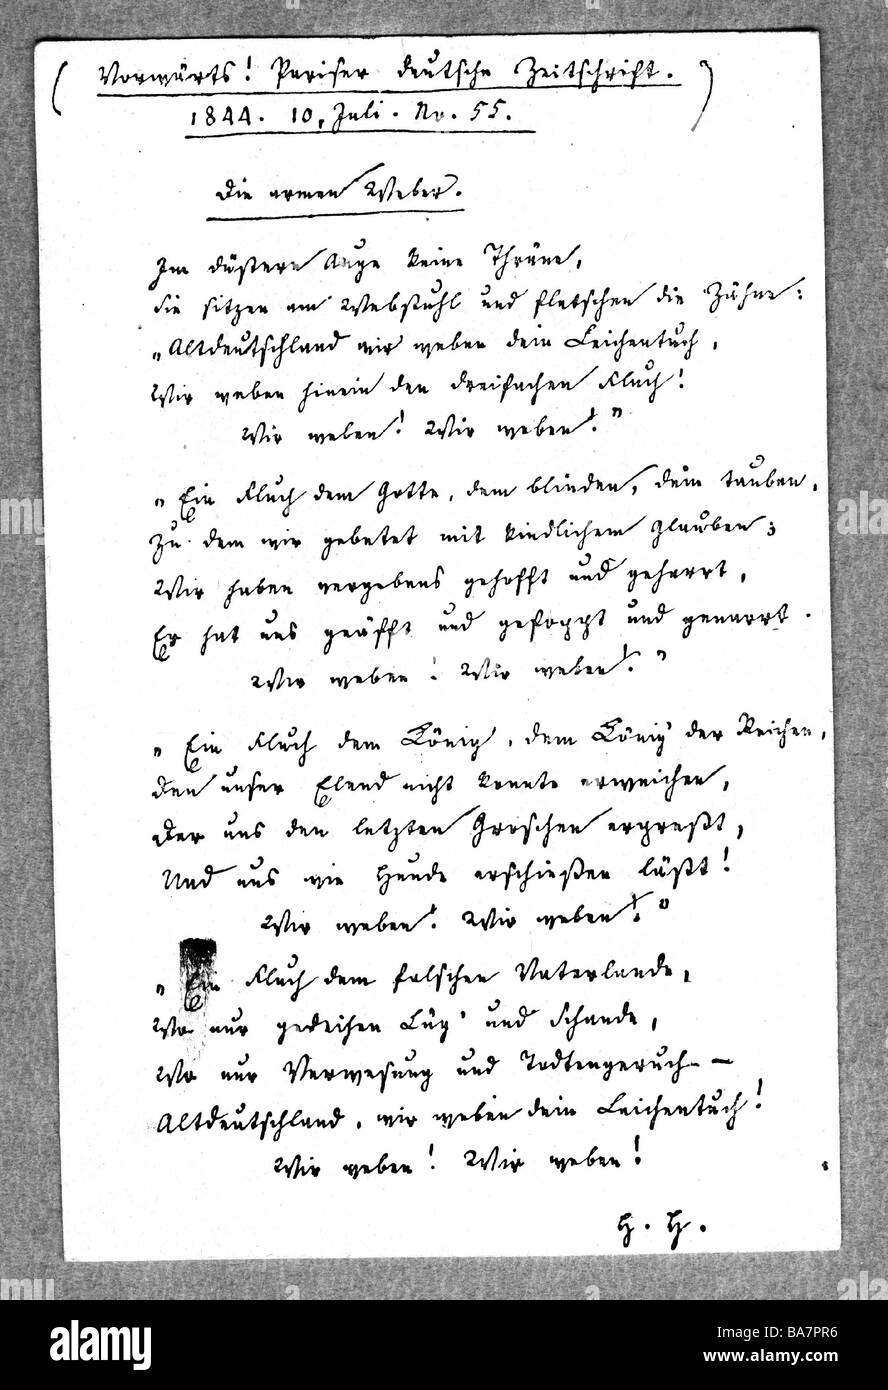 (Vorwärts! Pariser deutsche Zeitschrift.)
1844. 10, Juli. No. 55.
Die armen Weber.
Im düstern Auge keine Thräne,
Sie sitzen am Webstuhl und fletschen die Zähne:
„Altdeutschland wir weben dein Leichentuch,
Wir weben hinein den dreifachen Fluch!
Wir weben! Wir weben!"
„Ein Fluch dem Gotte, dem blinden, dem tauben,
Zu dem wir gebetet mit kindlichem Glauben;
Wir haben vergebens gehofft und geharrt,
Er hat uns geäfft und gefoppt und genarrt.
Wir weben! Wir weben!"
„Ein Fluch dem König, dem König der Reichen,
Den unser Elend nicht konnte erweichen,
Der uns den letzten Groschen erpreßt,
Und uns wie Hunde erschießen läßt!
Wir weben! Wir weben!"
„Ein Fluch dem falschen Vaterlande,
Wo nur gedeihen Lüg' und Schande,
Wo nur Verwesung und Todtengeruch –
Altdeutschland, wir weben dein Leichentuch!
Wir weben! Wir weben!
H. H.
alamy
Image ID: BA7PR6
www.alamy.com